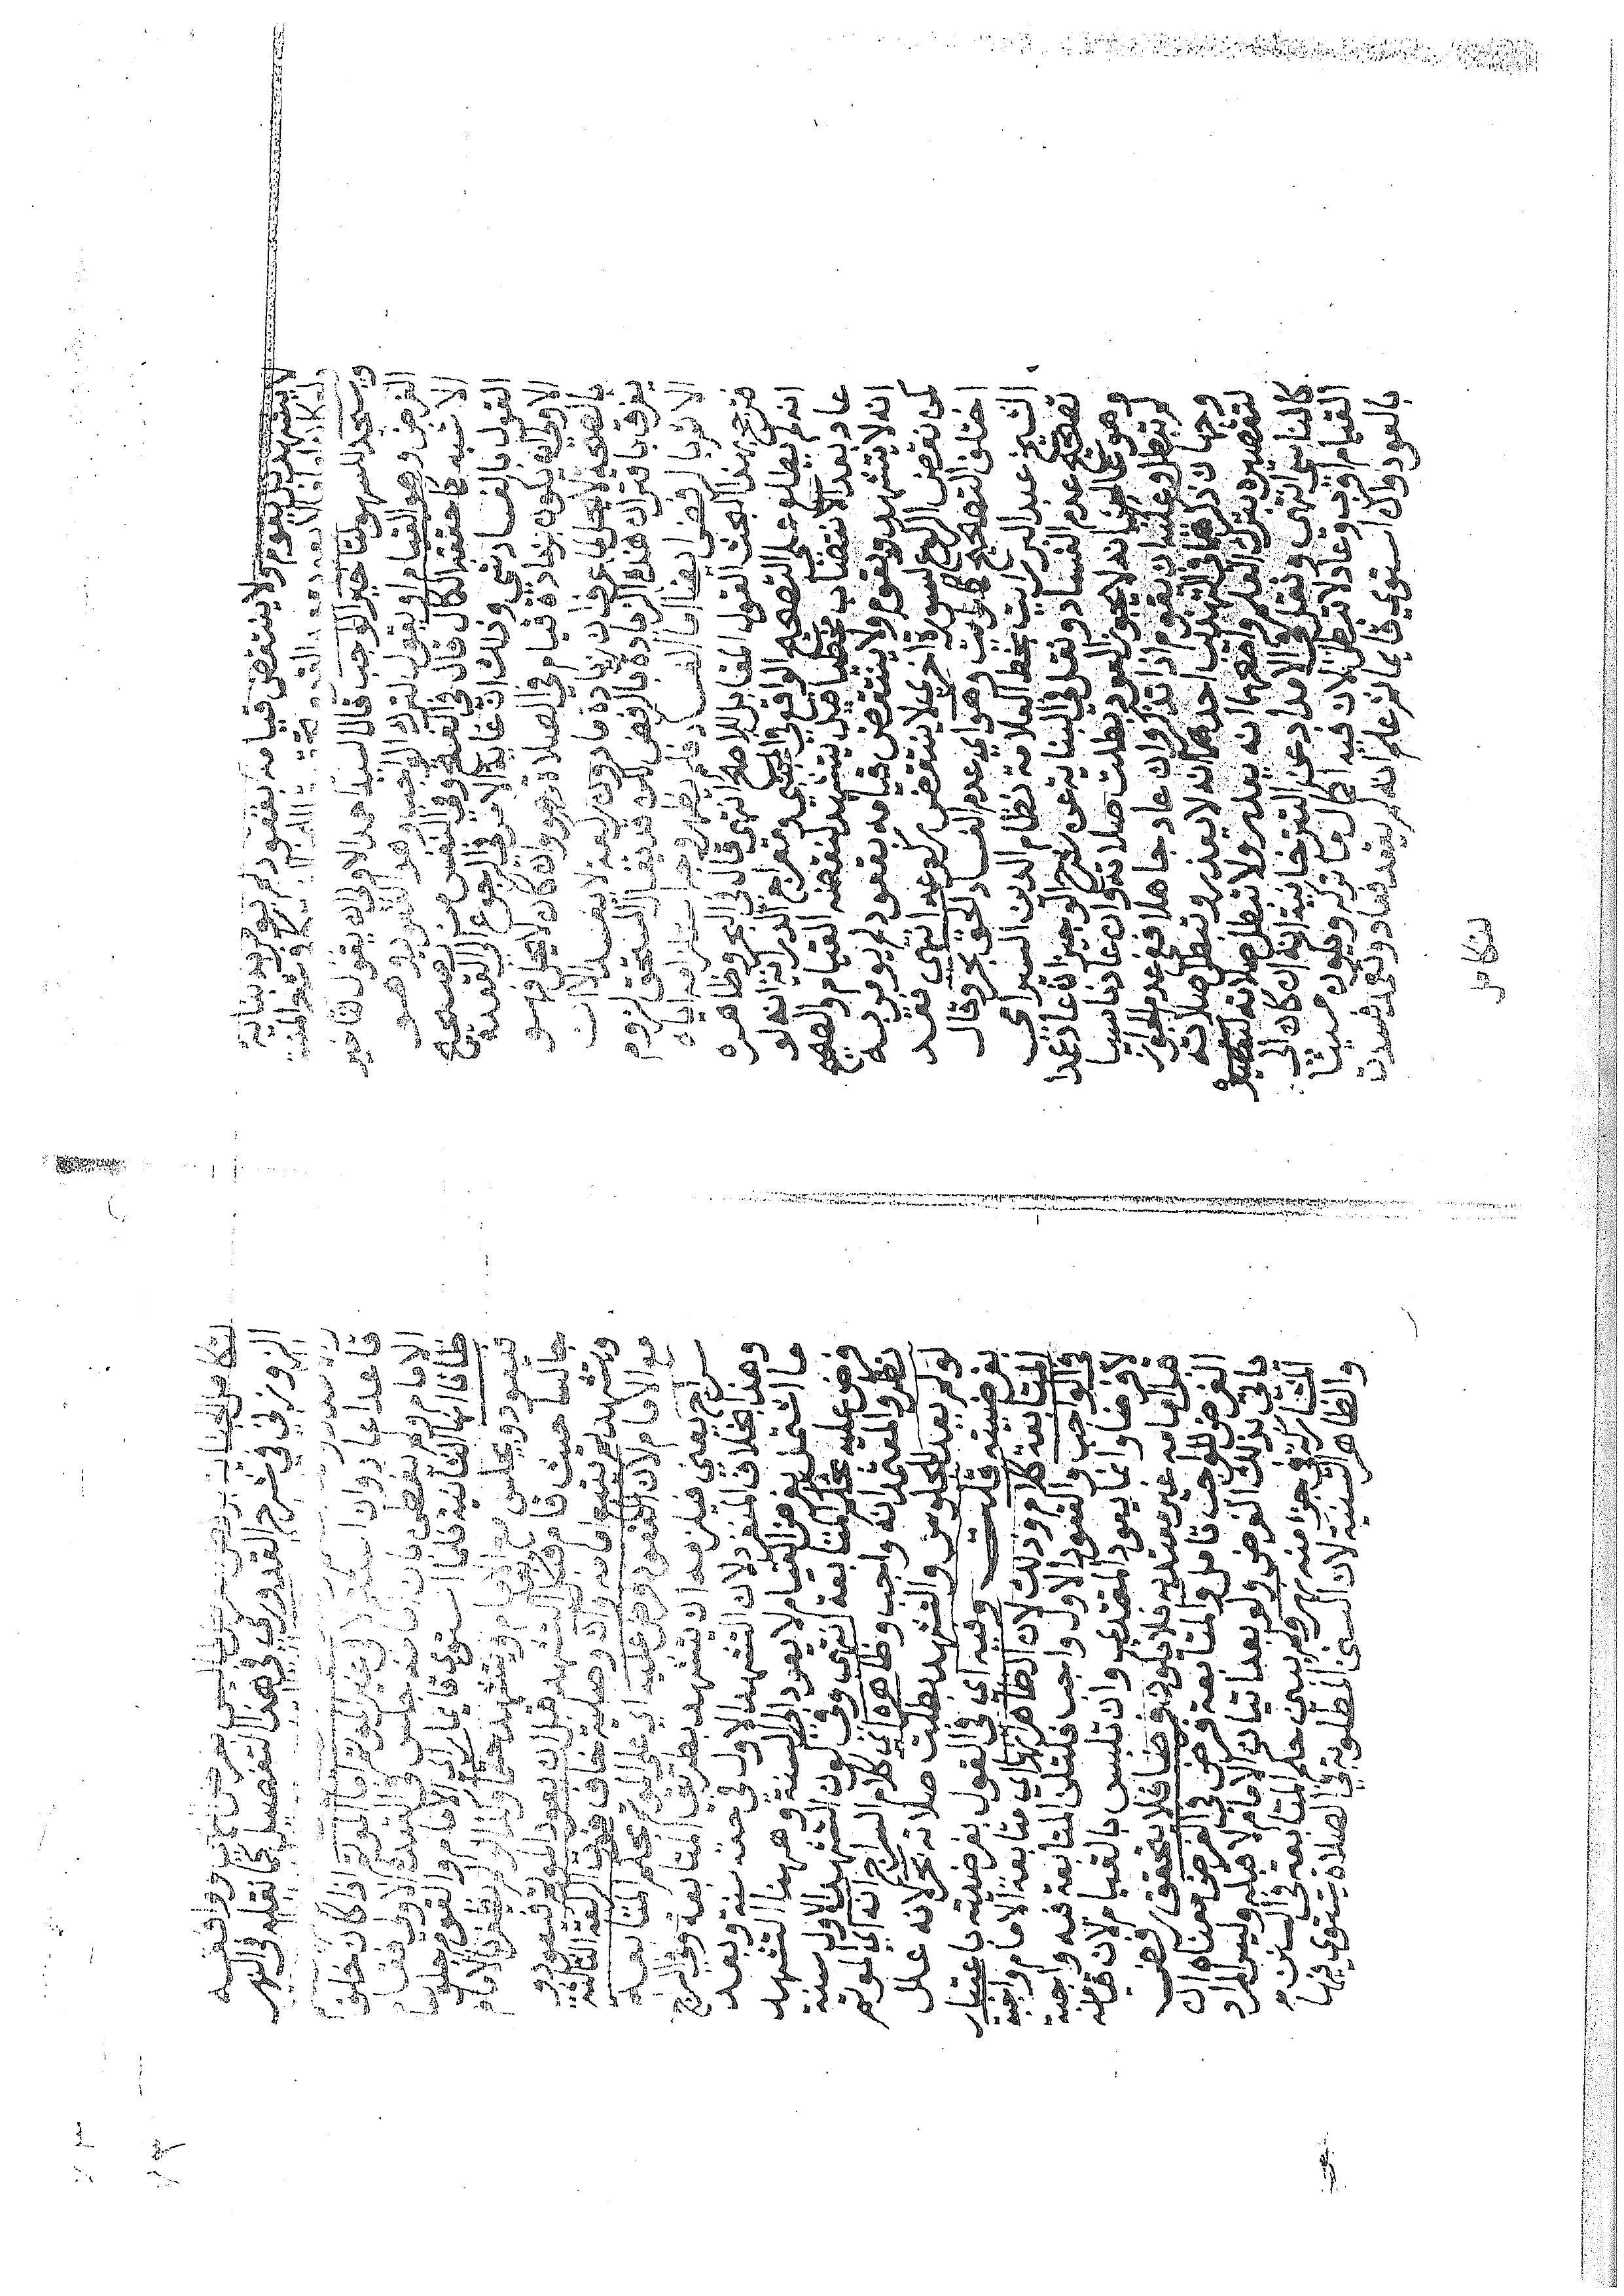 يتشهد بل يقوم ولا ينتقض قيامه بقعود لم يؤمر به بناية
ويسجد للسهو لتاخير الواجب قال السيد احمد الاولى ان يقول لتاخير
الفرض وهو القيام او يقول لترك الواجب وهو القعود وهو
الاشبه كما حققه الكمال قال في الفتح وفي النفس من تصحيح
القول بالفساد شي وذلك ان غاية الامر في الرجوع الى القعدة
الاولى ان يكون زيادة قيام في الصلاة وهو وان كان لا يحل فهو
بالصحة لا يخل لما عرف ان زيادة ما دون ركعة لا يفسد الا ان
يفرق باقتران هذه الزيادة بالرفض لكن قد يقال المستحق لزوم
الاثم بالرفض ايضا اما الفساد فلم يظهر وجه استلزامه اياه
فترجح بهذا البحث القول المقابل للاصح انتهى قال في البحر وظاهره
انه لم يطلع على التصحيح الواقع في المجتبى ومعراج الدراية انه لو
عاد بعد الانتصاب مخطئا قيل يتشهد لنقضه القيام والصحيح
انه لا يتشهد ويقوم ولا ينتقض قيامه بقعود لم يؤمر به
كمن نقض الركوع لسورة اخرى لا ينتقض ركوعه انتهى
اختلف التصحيح كما رايت وهو اي عدم الفساد الحق بحر وقال
الشيخ عبد البر رايت بخط العلامة نظام الدين السيرامي
تصحيح عدم الفساد ونقل في البناية عن شرح الوجيز ان عاد عمدا
وهو عالم بانه لا يجوز العود بطلت صلاته وان عاد ناسيا
لم تبطل وعليه ان يقوم اذا تذكر وان عاد جاهلا عدم الجواز
وجهان ذكرهما في التهذيب احدهما انه لا يعذر وتبطل صلاته
لتقصيره بترك العلم واصحهما انه يعذر ولا تبطل صلاته
كالناسي انتهى ونقل في الامداد عن التترخانية انه ان كان الى
القيام اقرب وعاد لا تبطل لان فيه اكمال ما تركه ويكون مسيئا
بالعود وان استوى قائما ثم علم انه لم يقعد فعاد وقعد فسدت
لتكامل
لتكامل الجناية برفض ليس بفرض ووافقه
الزوزني في شرح القدوري وهذا التفصيل كما نقله في النهر
قاعدا عاد وان في غير المؤتم اما المؤتم اذا كان خلف
الامام جلس في القعدة الاولى فقام
ظانا انها الثانية فلما استوى قائما راى الامام والقوم جلوسا
فيعود ويجلس مع الامام ويتشهد حتما الامام
جالسا حيث قام قبل التشهد قبل ان يعود المؤتم فيقعد و
ويتشهد ثم يتبع امامه وان وصلية خاف فوت الركعة الثالثة
مع الامام لان القعود فرض عليه اي على المؤتم بحكم المتابعة
سراج يعني فيلزمه ان يتشهد بطريق المتابعة وفي البحر
وهذا بخلاف المنفرد لان التشهد الاول في حقه سنة وبعد
ما اشتغل بفرض القيام لا يعود الى السنة وههنا التشهد
فرض عليه بحكم المتابعة انتهى وفي كون التشهد الاول سنة
نظر والمعتمد انه واجب وظاهره اي كلام السراج انه اي المؤتم
لو لم يعد للجلوس والتشهد بطلت صلاته بحر لانه علل
بفرضيته قلت وفيه اي في القول بفرضيته باعتبار
المتابعة كلام وذلك لان الظاهر انها اي متابعة الامام واجبة
في الواجب والقعود الاول واجب فتكن المتابعة فيه واجبة
لا فرضا وانما يعود المقتدي وان تلبس بالقيام لان قيامه
قبل امامه غير معتد به فلا يكون فرضا فلا يتحقق رفض
الفرض للواجب تامل والمتابعة فرض في الفرض معناه ان
ياتي بذلك الفرض ولو بعد اتيان الامام لا قبله وليس المراد
المشاركة في جزء منه ثم لم يبين حكم المتابعة في السنن
والظاهر السنية لان السنن المطلوبة في الصلاة يستوي فيها